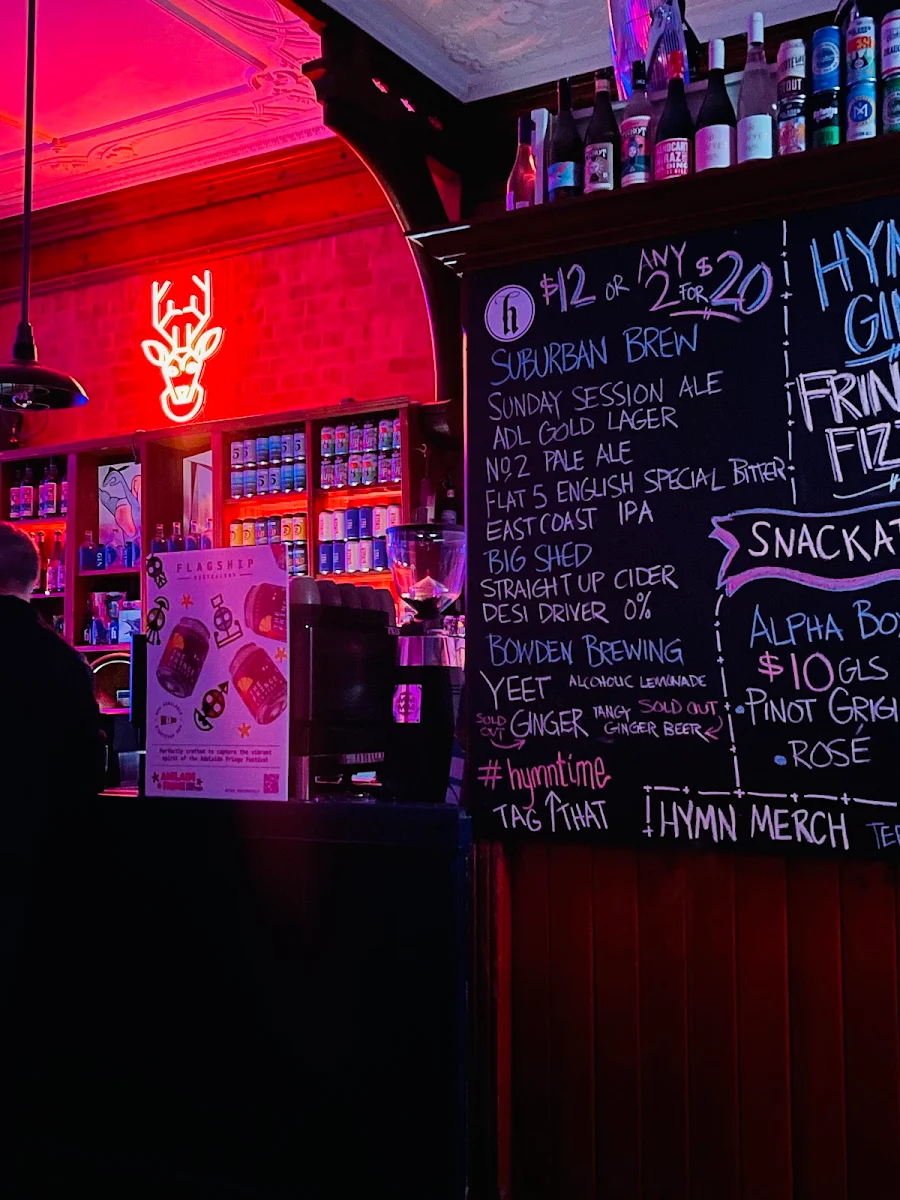 h $12 OR ANY 2 FOR $20
SUBURBAN BREW
SUNDAY SESSION ALE
ADL GOLD LAGER
No.2 PALE ALE
FLAT 5 ENGLISH SPECIAL BITTER
EAST COAST IPA
BIG SHED
STRAIGHT UP CIDER
DESI DRIVER 0%
BOWDEN BREWING
YEET ALCOHOLIC LEMONADE
SOLD OUT GINGER TANGY GINGER BEER SOLD OUT
#hymntime
TAG THAT
HYM
GI
FRIN
FIZ
SNACKA
ALPHA BO
$10 GLS
PINOT GRIGI
ROSÉ
HYMN MERCH TE
FLAGSHIP
Perfectly crafted to capture the vibrant
spirit of the Adelaide Fringe Festival
ADELAIDE
FRINGE